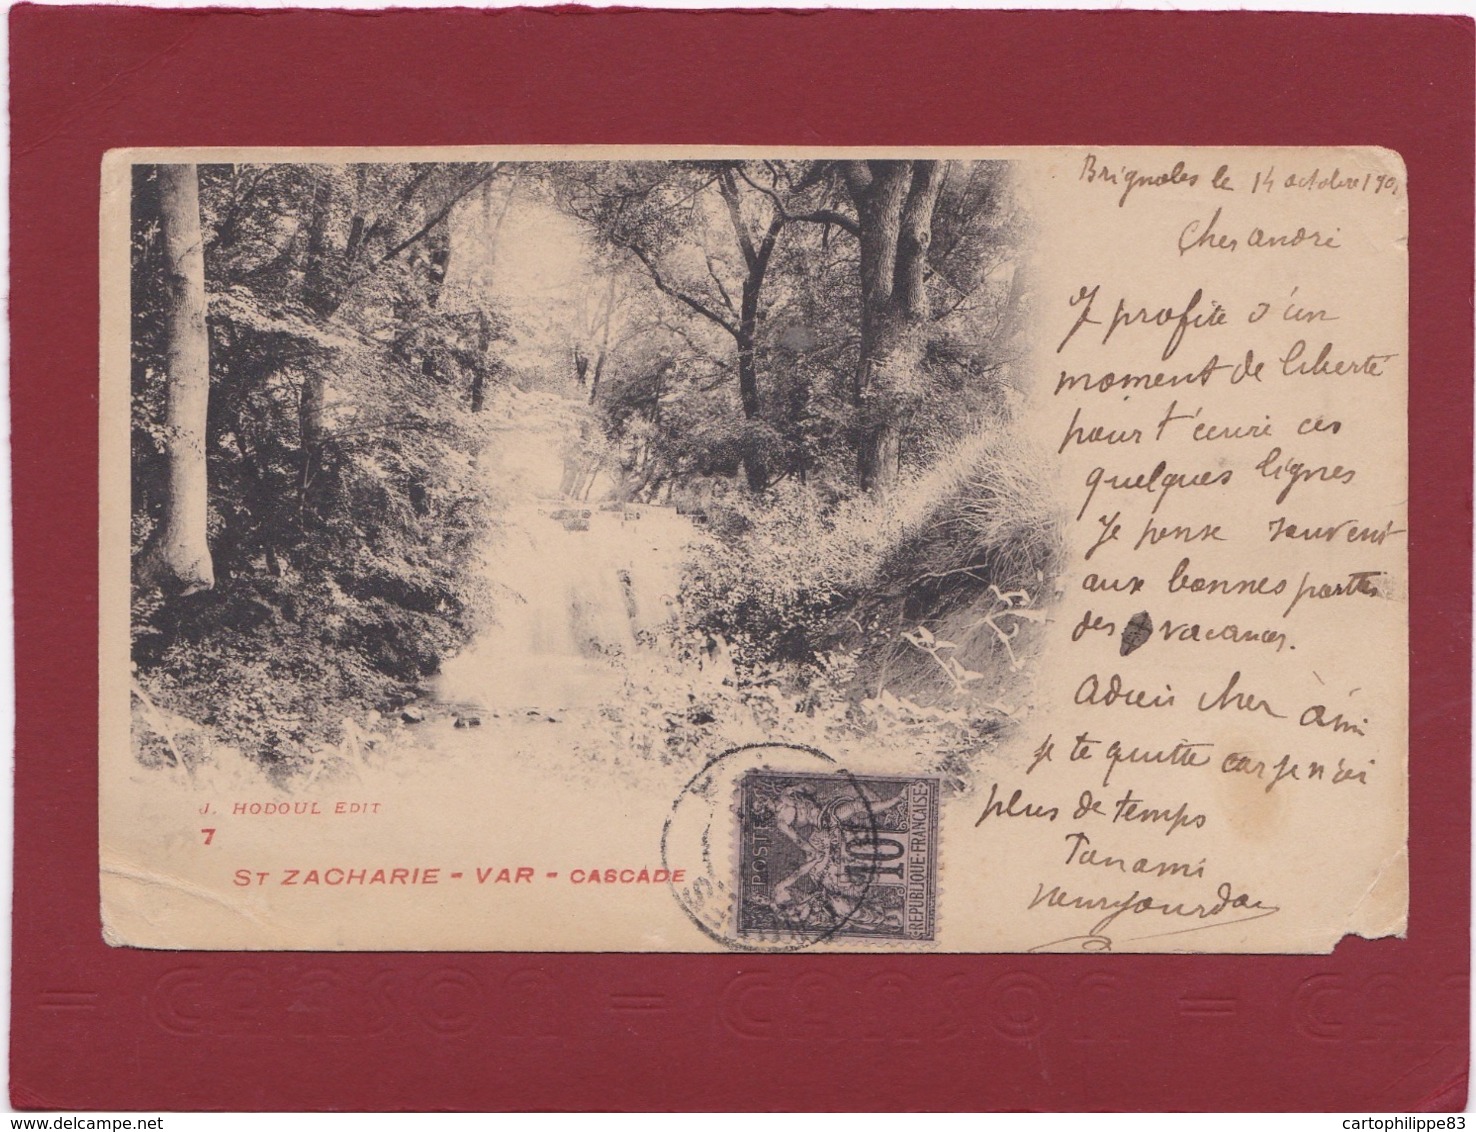 Brignoles le 14 octobre 190
Cher andré
Je profite d'un
moment de liberté
pour t'écrire ces
quelques lignes
Je pense souvent
aux bonnes parties
des vacances.
Adieu cher ami
je te quitte car je n'ai
plus de temps
Ton ami
J. HODOUL EDIT
7
ST ZACHARIE - VAR - CASCADE
POSTES
10
REPUBLIQUE FRANÇAISE
= canson = canson = ca
delcampe.net
cartophilippe83